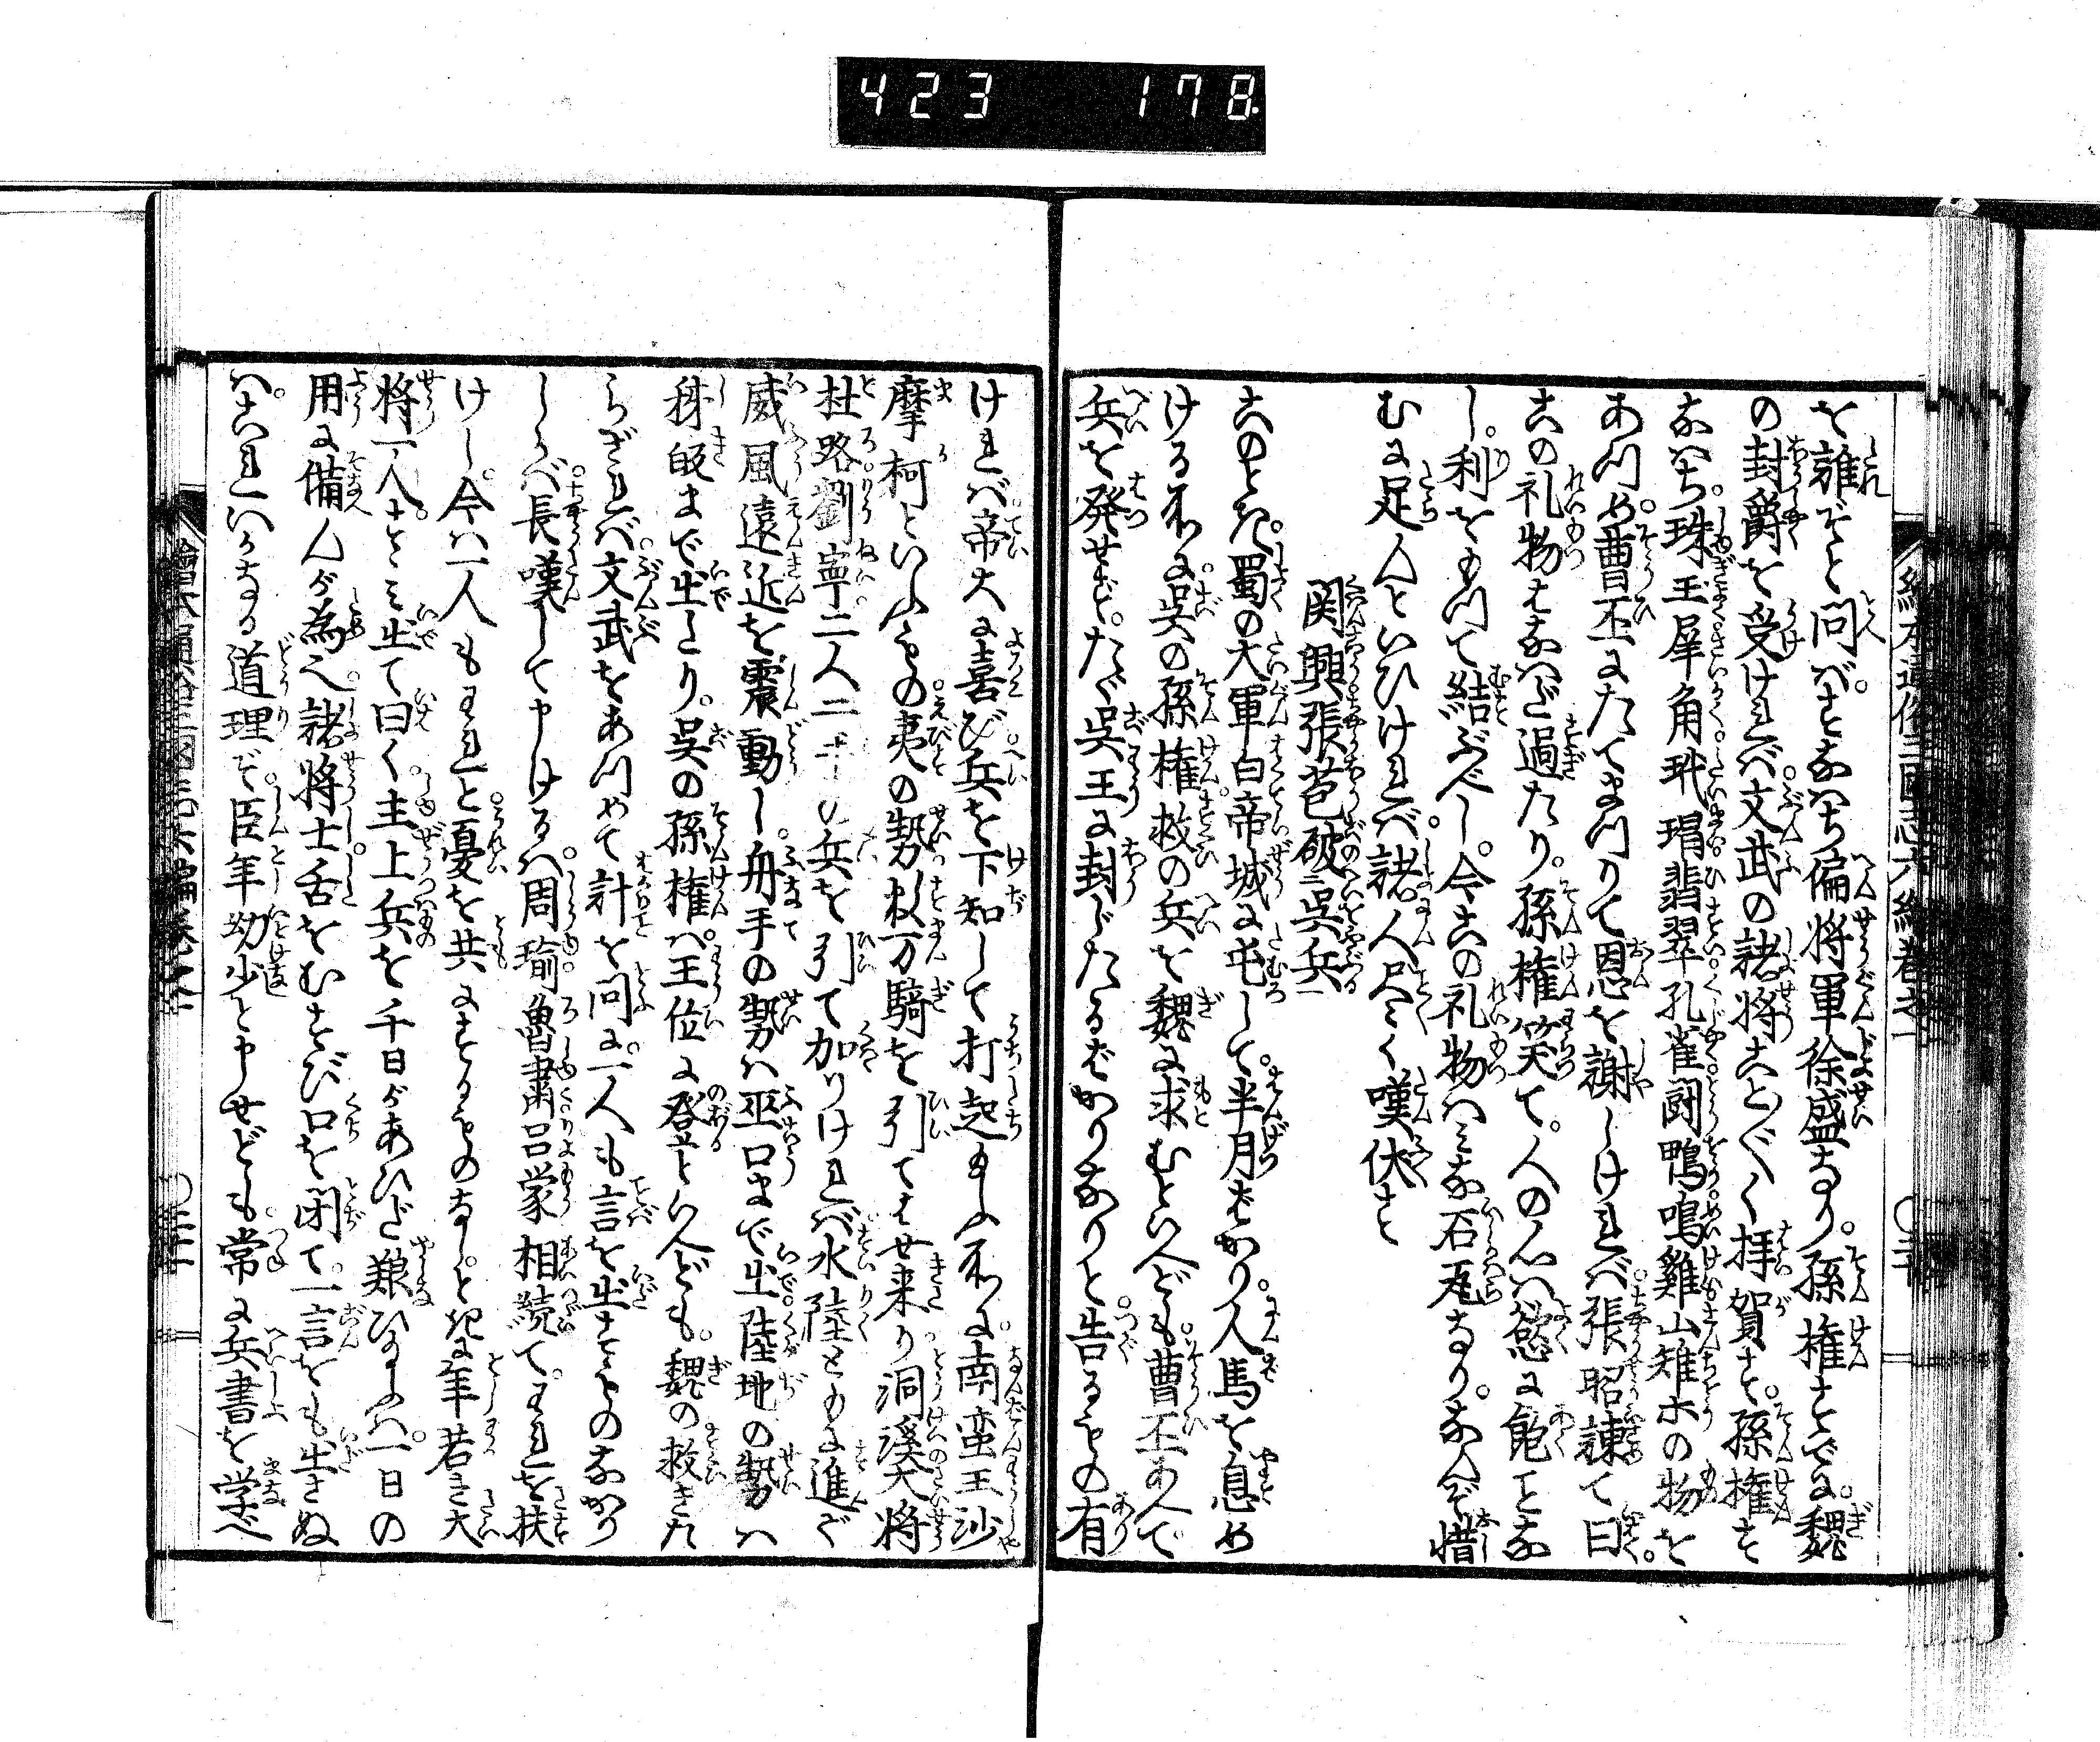 423 178
を誰ぞと問ば。すなはち偏将軍徐盛なり。孫権すでに。魏
の封爵を受ければ文武の諸将ことごとく拝賀す。孫権す
なはち。珠玉犀角玳瑁翡翠孔雀闘鴨鳴雞山雉ホの物を
あつめ。曹丕にたてまつりて恩を謝しければ張昭諫て曰く。
この礼物はなはだ過たり。孫権笑て。人の心は慾に飽ことな
し。利をもつて結ぶべし。今この礼物はみな石瓦なり。なんぞ惜
むに足んといひければ。諸人尽く嘆伏す
関興張苞破二呉兵一
このとき。蜀の大軍白帝城に屯して。半月ばかり。人馬を息め
ける所に。呉の孫権救の兵を魏に求むといへども。曹丕あへて
兵を発せず。たゞ呉王に封じたるばかりなりと告るもの有
ければ帝大に喜び兵を下知して打起給ふ所に。南蛮王沙
摩柯といふもの夷の勢数万騎を引てはせ来り洞溪大将
杜路劉寧二人二 の兵を引て加りければ水陸ともに進で
威風遠近を震動し。舟手の勢は巫口まで出陸地の勢は
秭帰まで出たり。呉の孫権は王位に登といへども。魏の救きた
らざれば文武をあつめて計を問に。一人も言を出すものなかり
しかば長嘆して申けるは。周瑜。魯粛呂蒙相続て。われを扶
けし。今は一人もわれと憂を共にするものなし。ときに年若き大
将一人。すゝみ出て曰く主上兵を千日があひだ養ひ給ふは。一日の
用に備んが為也。諸将士舌をむすび口を閉て。一言をも出さぬ
は。これいかなる道理ぞ。臣年幼少と申せども。常に兵書を学べ